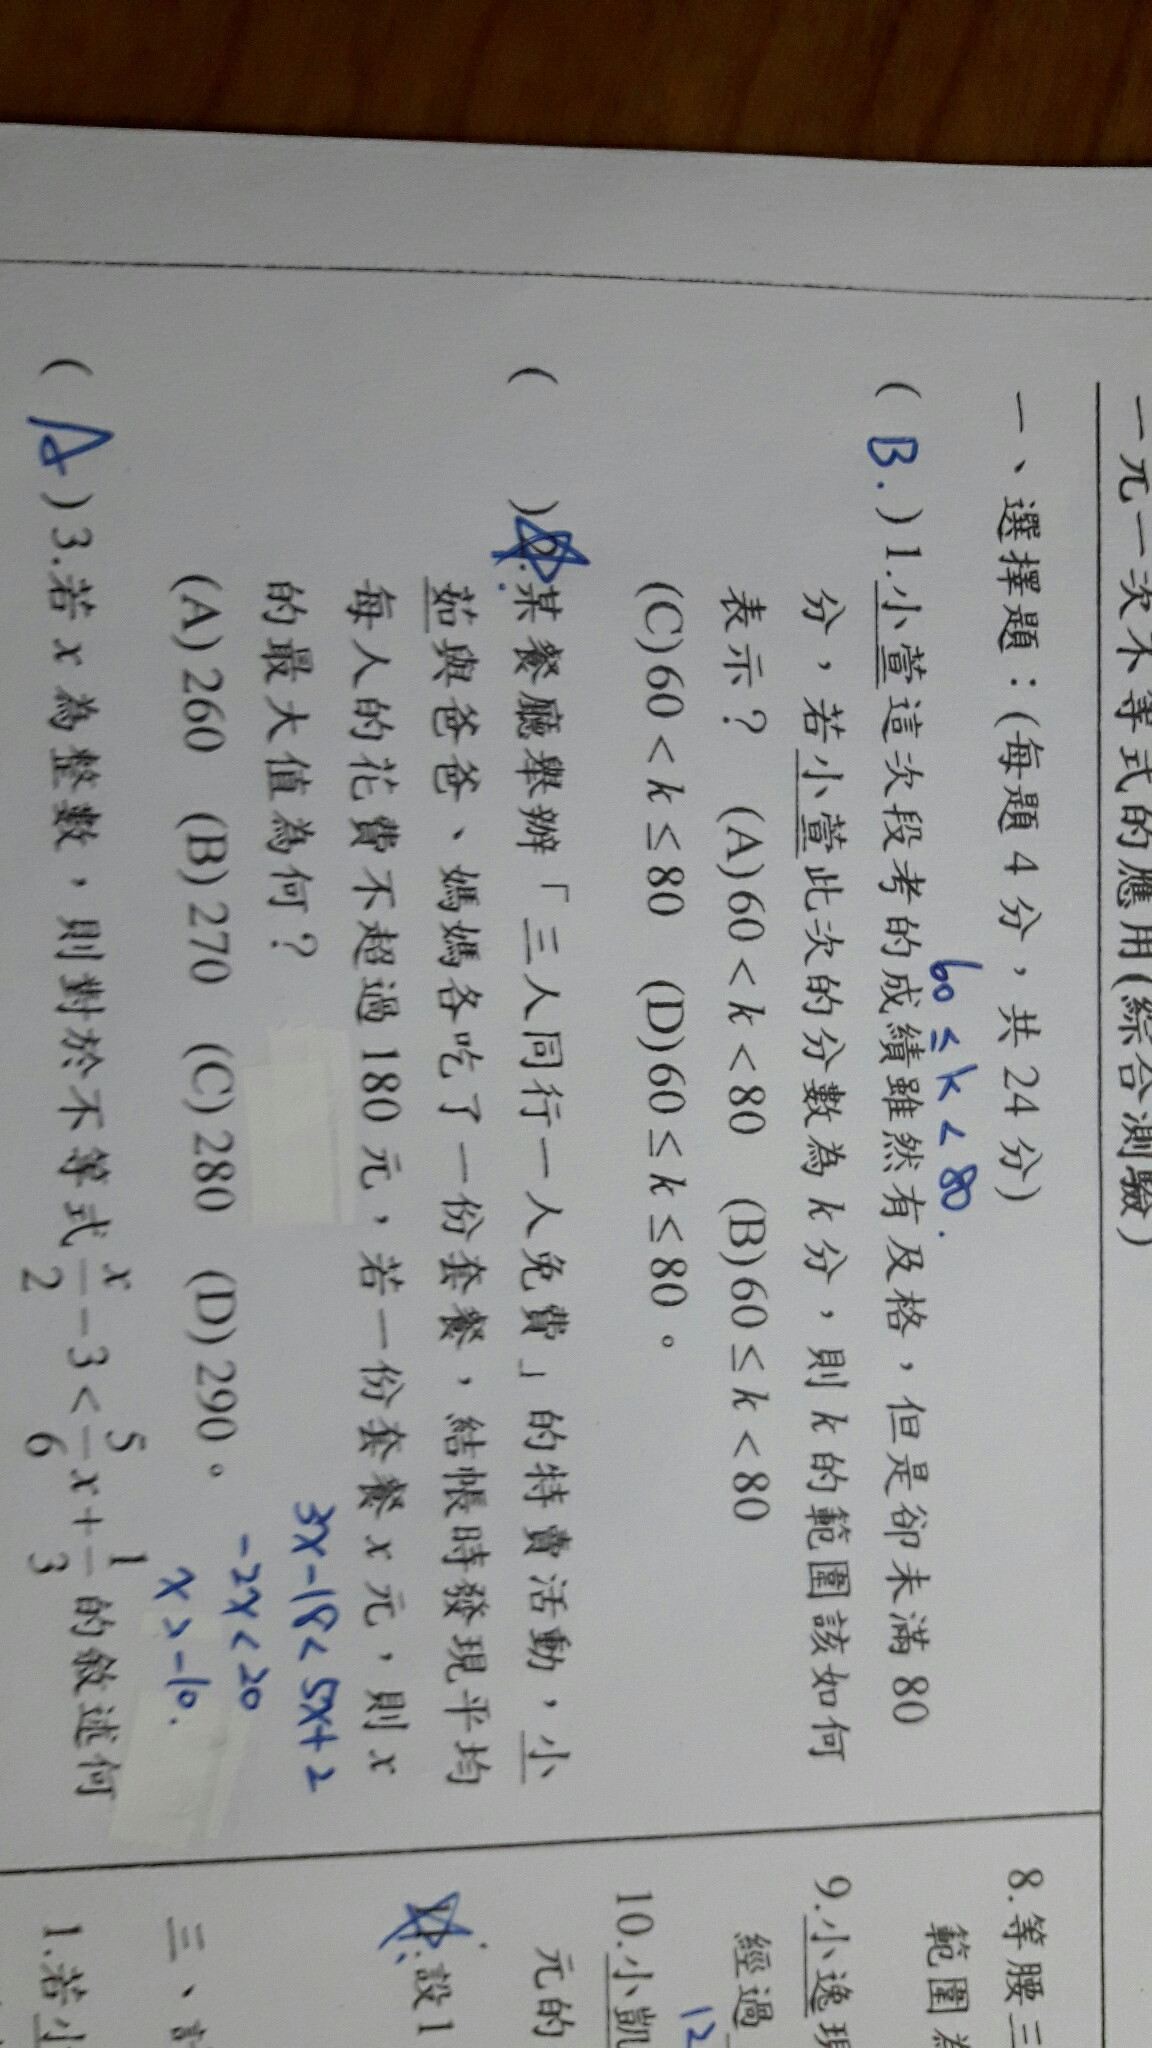 一元一次不等式的應用(綜合測驗)
一、選擇題：(每題 4 分，共 24 分)
60 ≤ k < 80.
( B. ) 1.小萱這次段考的成績雖然有及格，但是卻未滿 80
分，若小萱此次的分數為 k 分，則 k 的範圍該如何
表示？ (A) 60 < k < 80 (B) 60 ≤ k < 80
(C) 60 < k ≤ 80 (D) 60 ≤ k ≤ 80。
( ) 2.某餐廳舉辦「三人同行一人免費」的特賣活動，小
茹與爸爸、媽媽各吃了一份套餐，結帳時發現平均
每人的花費不超過 180 元，若一份套餐 x 元，則 x
的最大值為何？
(A) 260 (B) 270 (C) 280 (D) 290。
3x-18 < 5x+2
-2x < 20
x > -10.
( A ) 3.若 x 為整數，則對於不等式 x/2 - 3 < 5/6 x + 1/3 的敘述何
8.等腰三
範圍為
9.小逸現
經過
12
10.小凱
元的
11.設 1
三、計
1.若小